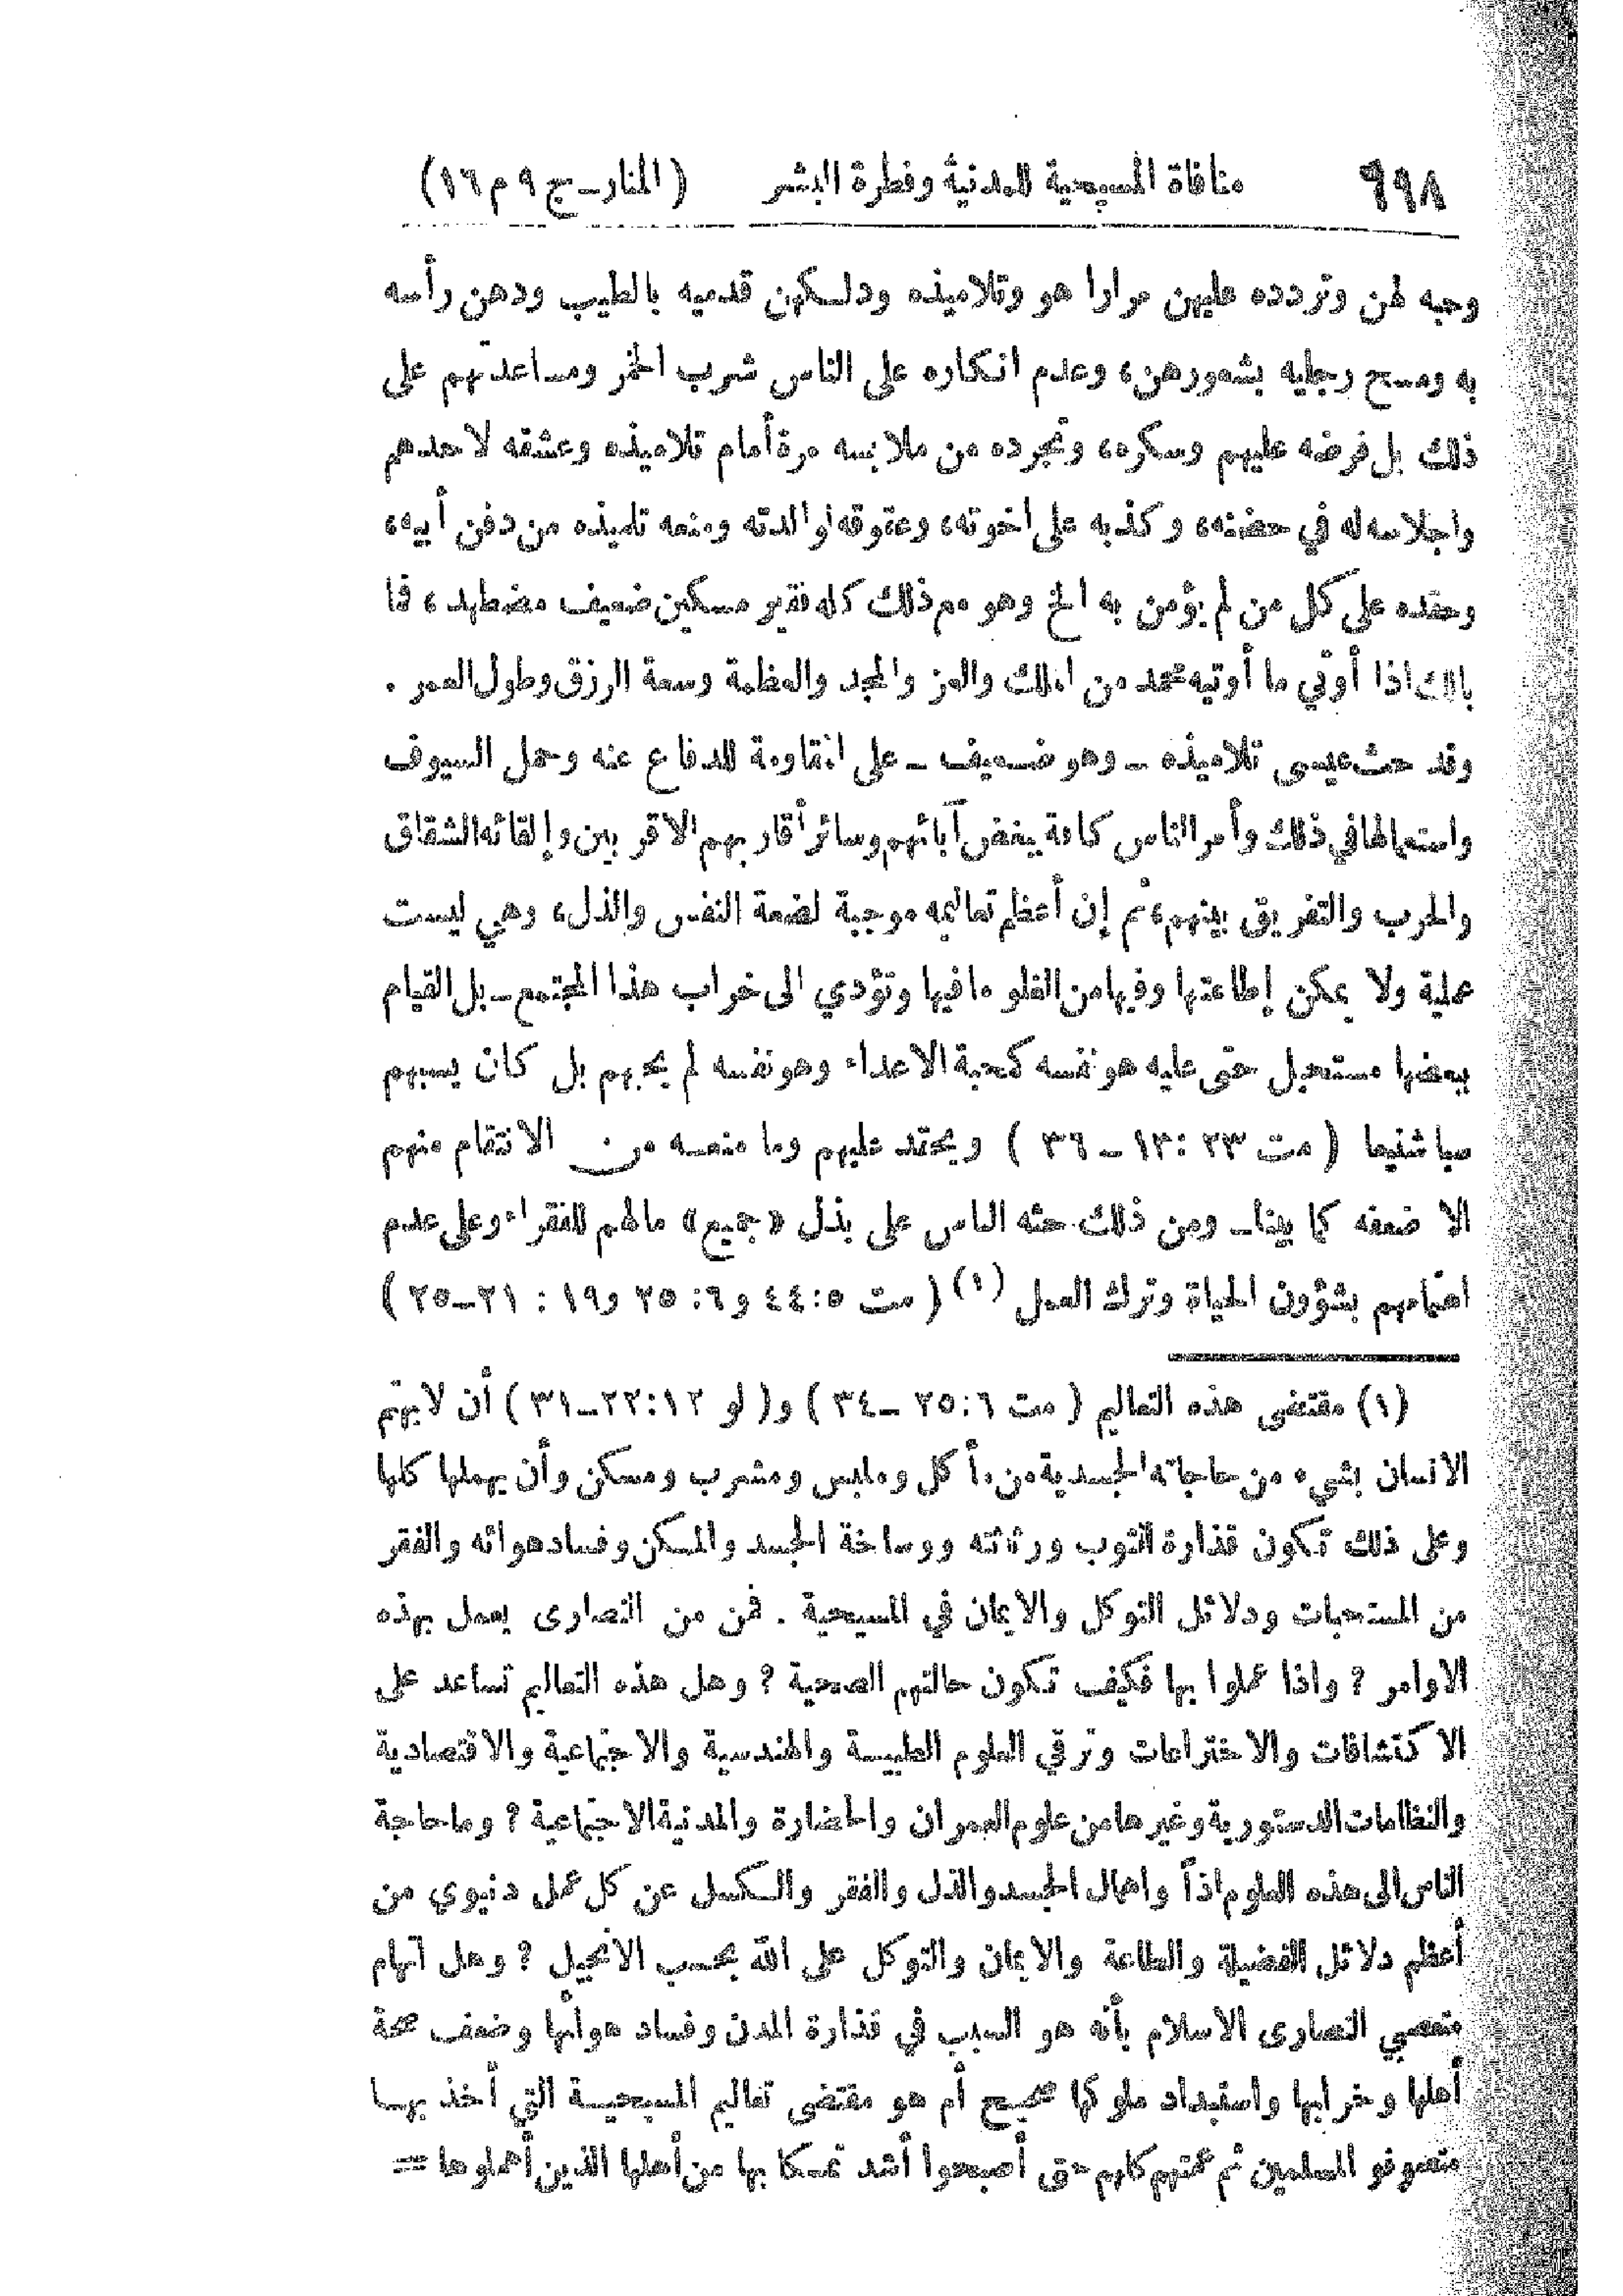 ٦٩٨ منافاة المسيحية للمدنية وفطرة البشر (المنار ـ ج ٩ م ١٦)
وحبه لهن وتردده عليهن مرارا هو وتلاميذه ودلكهن قدميه بالطيب ودهن رأسه
به ومسح رجليه بشعورهن، وعدم انكاره على الناس شرب الخمر ومساعدتهم على
ذلك بل فرضه عليهم وسكره، وتجرده من ملابسه مرة أمام تلاميذه وعشقه لاحدهم
واجلاسه له في حضنه، وكذبه على اخوته، وعقوقه لوالدته ومنعه تلميذه من دفن أبيه،
وحقده على كل من لم يؤمن به الخ وهو مع ذلك كله فقير مسكين ضعيف مضطهد، فما
بالك اذا أوتي ما أوتيه محمد من الملك والعز والمجد والعظمة وسعة الرزق وطول العمر .
وقد حث عيسى تلاميذه ـ وهو ضعيف ـ على المقاومة للدفاع عنه وحمل السيوف
واستعمالها في ذلك وأمر الناس كافة ببغض آبائهم وسائر أقاربهم الاقربين وإلقائه الشقاق
والحرب والتفريق بينهم، ثم إن أعظم تعاليمه موجبة لضعة النفس والذل، وهي ليست
عملية ولا يمكن إطاعتها وفيها من الغلو ما فيها وتؤدي الى خراب هذا المجتمع ـ بل القيام
ببعضها مستحيل حتى عليه هو نفسه كمحبة الاعداء وهو نفسه لم يحبهم بل كان يسبهم
سبا شنيعا ( مت ٢٣ : ١٣ ـ ٣٦ ) ويحتد عليهم وما منعه من الانتقام منهم
الا ضعفه كما بينا ـ ومن ذلك حثه الناس على بذل « جميع » مالهم للفقراء وعلى عدم
اهتمامهم بشؤون الحياة وترك العمل (١) ( مت ٥ : ٤٤ و ٦ : ٢٥ و ١٩ : ٢١ ـ ٢٥ )
(١) مقتضى هذه التعاليم ( مت ٦ : ٢٥ ـ ٣٤ ) و( لو ١٢ : ٢٢ ـ ٣١ ) أن لا يهتم
الانسان بشيء من حاجاته الجسدية من مأكل وملبس ومشرب ومسكن وأن يهملها كلها
وعلى ذلك تكون قذارة الثوب ورثاثته ووساخة الجسد والمسكن وفساد هوائه والفقر
من المستحبات ودلائل التوكل والايمان في المسيحية . فمن من النصارى يعمل بهذه
الاوامر ? واذا عملوا بها فكيف تكون حالتهم الصحية ? وهل هذه التعاليم تساعد على
الاكتشافات والاختراعات وترقي العلوم الطبية والهندسية والاجتماعية والاقتصادية
والنظامات الدستورية وغيرها من علوم العمران والحضارة والمدنية الاجتماعية ? وما حاجة
الناس الى هذه العلوم اذاً واهمال الجسد والذل والفقر والكسل عن كل عمل دنيوي من
أعظم دلائل الفضيلة والطاعة والايمان والتوكل على الله بحسب الانجيل ? وهل اتهام
متعصبي النصارى الاسلام بأنه هو السبب في قذارة المدن وفساد هوائها وضعف صحة
أهلها وخرابها واستبداد ملوكها صحيح أم هو مقتضى تعاليم المسيحية التي أخذ بها
متصوفو المسلمين ثم عمتهم كلهم حتى أصبحوا أشد تمسكا بها من أهلها الذين أهملوها ==